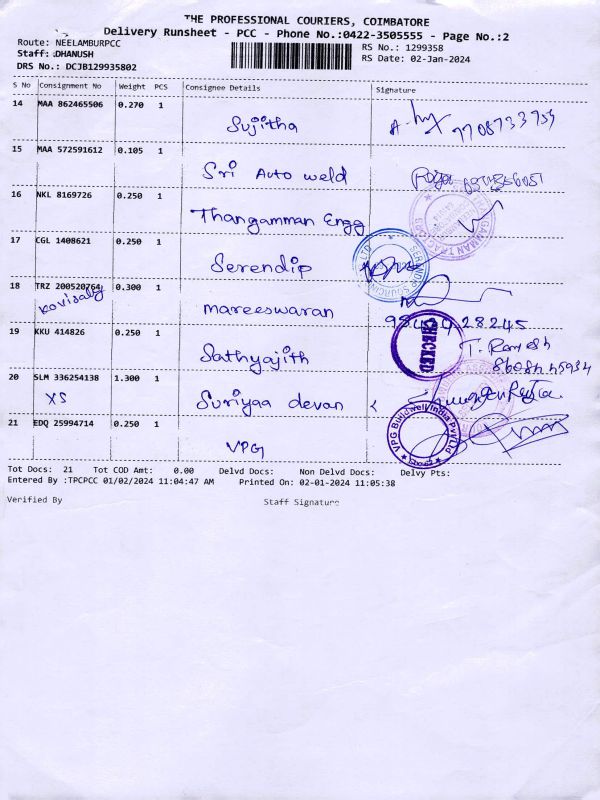 THE PROFESSIONAL COURIERS, COIMBATORE
Delivery Runsheet - PCC - Phone No.:0422-3505555 - Page No.:2
Route: NEELAMBURPCC
RS No.: 1299358
Staff: DHANUSH
RS Date: 02-Jan-2024
DRS No.: DCJB129935802
S No Consignment No Weight PCS Consignee Details Signature
14 MAA 862465506 0.270 1
Sujitha 7708733759
15 MAA 572591612 0.105 1
Sri Auto weld
16 NKL 8169726 0.250 1
Thangamman Engg
17 CGL 1408621 0.250 1
Serendip
18 TRZ 200520764 0.300 1
mareeswaran
19 KKU 414826 0.250 1
CHECKED
T. Ramesh
Sathyajith
20 SLM 336254138 1.300 1
XS Suriyaa devan
21 EDQ 25994714 0.250 1
VPG
VPG Buildwell India Pvt Ltd
Tot Docs: 21 Tot COD Amt: 0.00 Delvd Docs: Non Delvd Docs: Delvy Pts:
Entered By :TPCPCC 01/02/2024 11:04:47 AM Printed On: 02-01-2024 11:05:38
Verified By Staff Signature